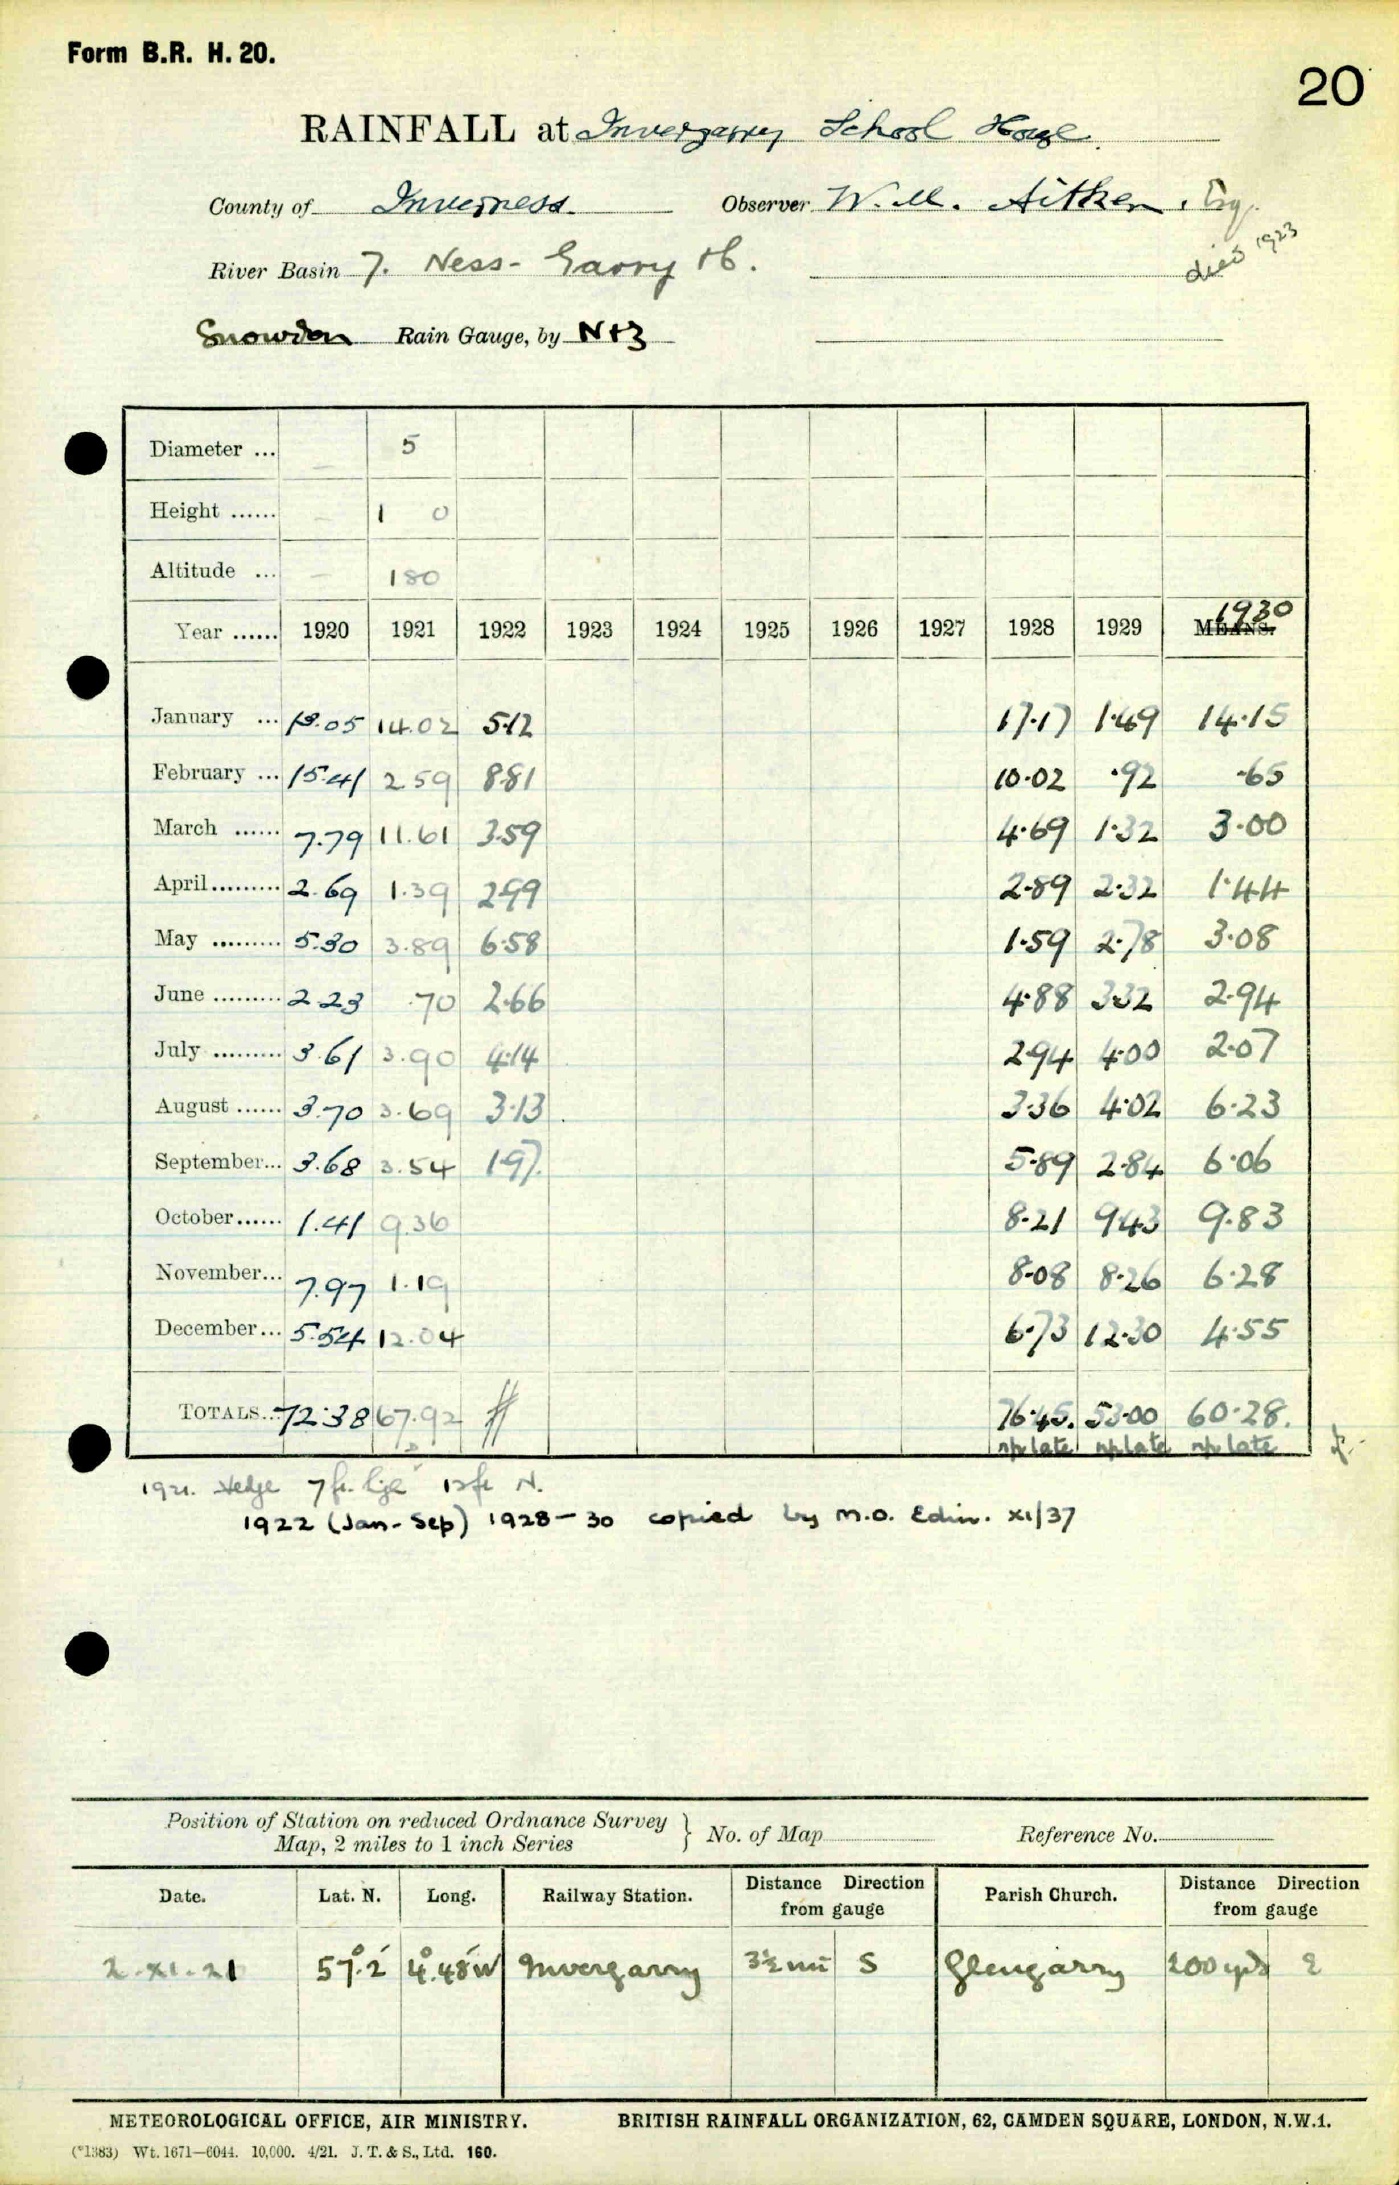 Form B.R. H. 20.
20
RAINFALL at Invergarry School House.
County of Inverness. Observer W. M. Aitken, Esq.
died 1923
River Basin 7. Ness - Garry H6.
Snowdon Rain Gauge, by N+Z
Diameter ... 5
Height ...... 1 0
Altitude ... 180
Year ...... 1920 1921 1922 1923 1924 1925 1926 1927 1928 1929 MEANS. 1930
January ... 13.05 14.02 5.12 17.17 1.49 14.15
February ... 15.41 2.59 8.81 10.02 .92 .65
March ...... 7.79 11.61 3.59 4.69 1.32 3.00
April......... 2.69 1.39 2.99 2.89 2.32 1.44
May ......... 5.30 3.89 6.58 1.59 2.78 3.08
June ......... 2.23 .70 2.66 4.88 3.32 2.94
July ......... 3.61 3.90 4.14 2.94 4.00 2.07
August ...... 3.70 3.69 3.13 3.36 4.02 6.23
September... 3.68 3.54 1.97 5.89 2.84 6.06
October...... 1.41 9.36 8.21 9.43 9.83
November... 7.97 1.19 8.08 8.26 6.28
December... 5.54 12.04 6.73 12.30 4.55
TOTALS... 72.38 67.92 76.45. 53.00 60.28.
late late late
1921. Hedge 7 ft. 12 ft N.
1922 (Jan-Sep) 1928-30 copied by M.O. Edin. XI/37
Position of Station on reduced Ordnance Survey
Map, 2 miles to 1 inch Series } No. of Map Reference No.
Date. Lat. N. Long. Railway Station. Distance Direction from gauge Parish Church. Distance Direction from gauge
2.XI.21 57°.2′ 4°.48′W Invergarry 3½ mi S Glengarry 200 yds E
METEOROLOGICAL OFFICE, AIR MINISTRY. BRITISH RAINFALL ORGANIZATION, 62, CAMDEN SQUARE, LONDON, N.W.1.
(*1383) Wt. 1671—6044. 10,000. 4/21. J. T. & S., Ltd. 160.